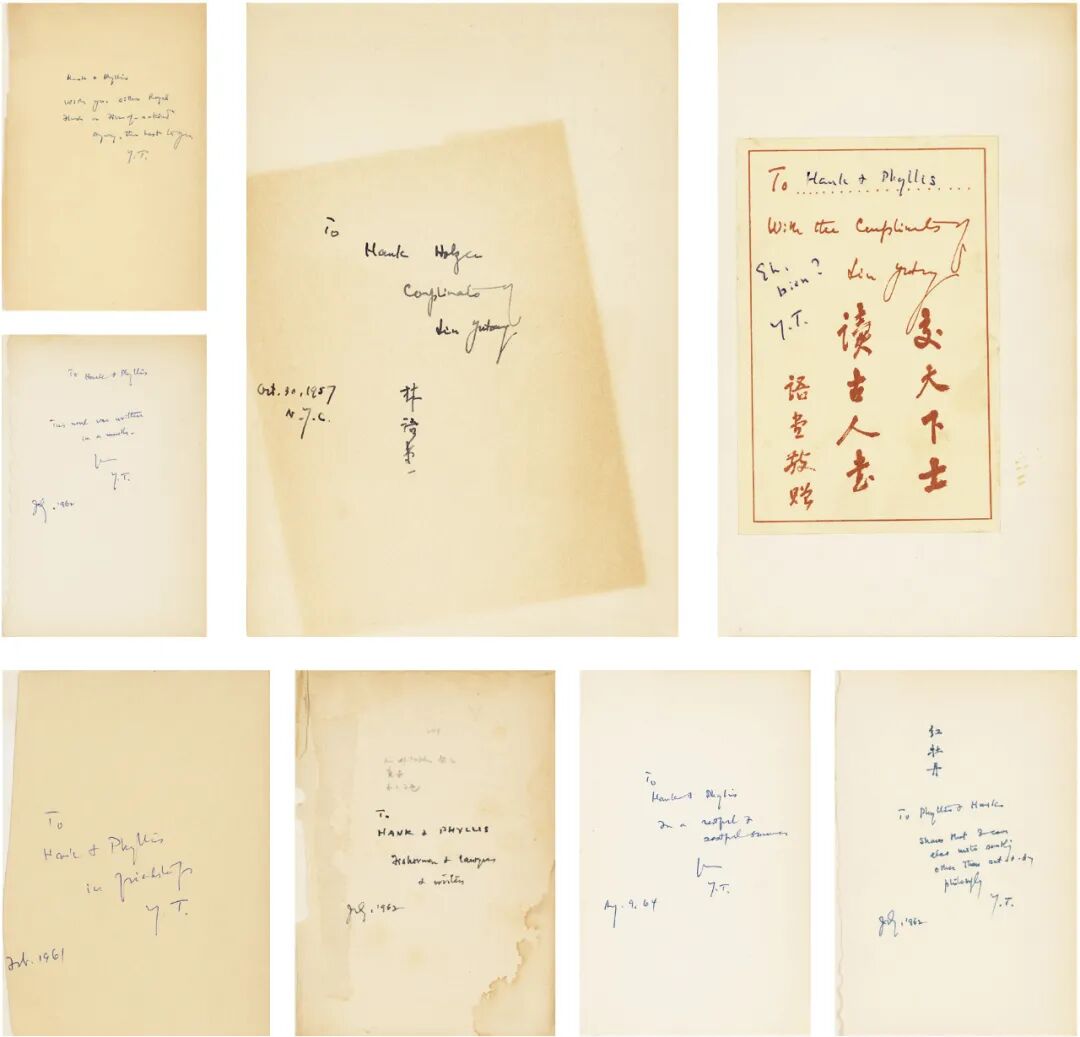 Hank & Phyllis
With you, either Royal
Flush or Four-of-a-kind
Y.T.
To Hank & Phyllis
This novel was written
in a month.
Y.T.
July, 1962
To
Hank Holzer
Compliments of
Lin Yutang
Oct. 30, 1957
N.Y.C.
林語堂
To Hank & Phyllis
With the Compliments of
Lin Yutang
Eh,
bien?
Y.T.
交天下士
讀古人書
語堂敬贈
To
Hank & Phyllis
in friendship
Y.T.
Feb. 1961
To
HANK & PHYLLIS
Fishermen & lawyers
& writers
July, 1962
To
Hank & Phyllis
In a restful &
summer
Y.T.
Aug. 9, 64
紅牡丹
To Phyllis & Hank
Shows that I can
also write something
other than cut-&-dry
philosophy
Y.T.
July, 1962